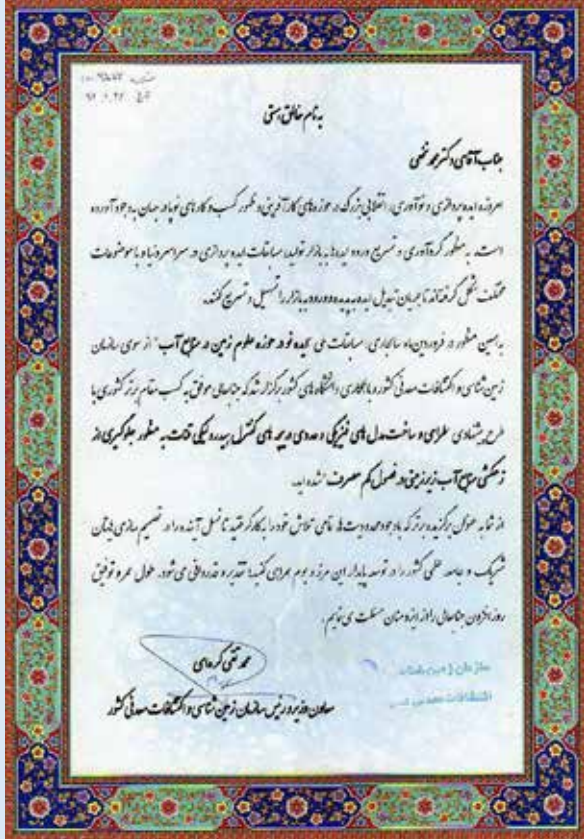 به نام خالق هستی
جناب آقای دکتر محمد نخعی
امروزه ایده پردازی و نوآوری، انقلابی بزرگ در حوزه های کارآفرینی و ظهور کسب و کارهای نو پا در جهان به وجود آورده
است. به منظور گردآوری و تسریع ورود ایده ها به بازار تولید، مسابقات ایده پردازی در سراسر دنیا و با موضوعات
مختلف شکل گرفته اند تا جریان تبدیل ایده به پدیده و ورود به بازار را تسهیل و تسریع کنند.
به همین منظور در فروردین ماه سالجاری، مسابقات ملی "ایده نو در حوزه علوم زمین در منابع آب" از سوی سازمان
زمین شناسی و اکتشافات معدنی کشور و با همکاری دانشگاه های کشور برگزار شد که جنابعالی موفق به کسب مقام برتر کشوری با
طرح پیشنهادی "طراحی و ساخت مدل های فیزیکی و عددی دریچه های کنترل هیدرولیکی قنات به منظور جلوگیری از
زهکشی منابع آب زیرزمینی در فصول کم مصرف" شده اید.
از شما به عنوان برگزیده برتر که با وجود محدودیت ها تمامی تلاش خود را به کار گرفتید تا نسل آینده را در تصمیم سازی هایتان
شریک و جامعه علمی کشور را در توسعه پایدار این مرز و بوم همراهی کنید؛ تقدیر و قدردانی می شود. طول عمر و توفیق
روزافزون جنابعالی را از ایزد منان مسئلت می نمایم.
محمد تقی کره ای
معاون وزیر و رئیس سازمان زمین شناسی و اکتشافات معدنی کشور